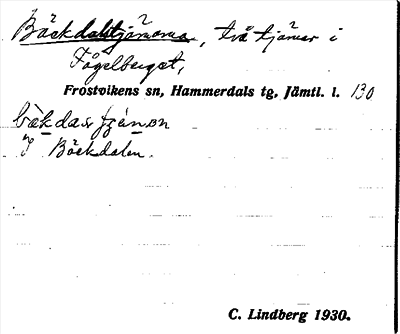 Bäckdalstjärnarna, två tjärnar i
Fågelberget,
Frostvikens sn, Hammerdals tg, Jämtl. l. 130
I Bäckdalen.
C. Lindberg 1930.